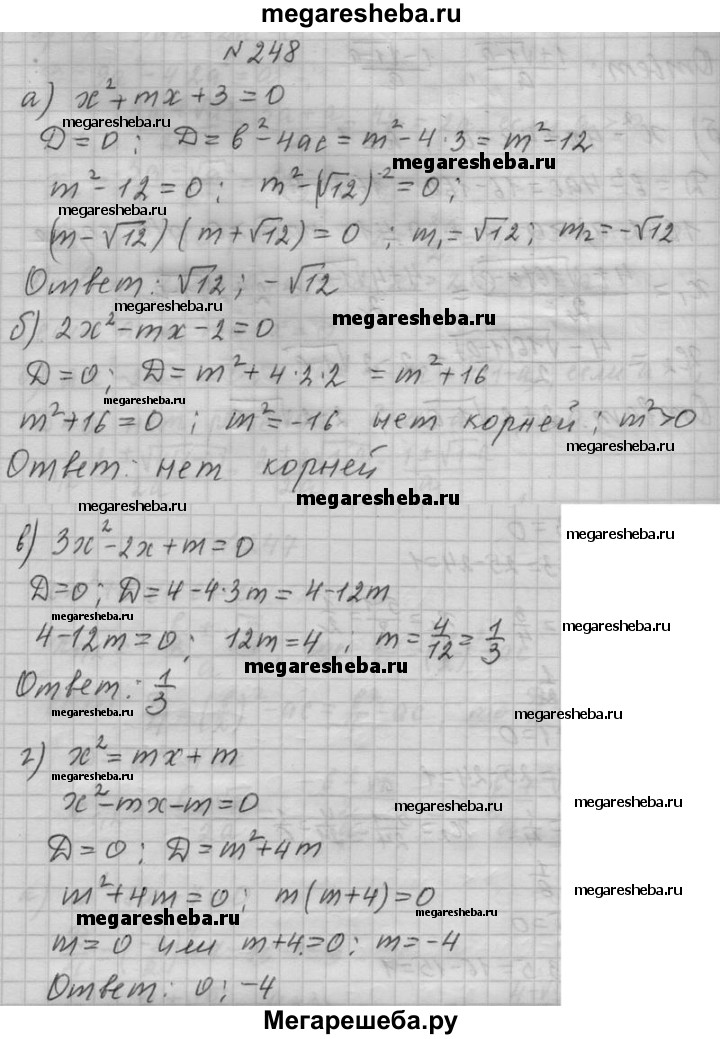 megaresheba.ru
N 248
а) x² + mx + 3 = 0
megaresheba.ru
D = 0; D = b² - 4ac = m² - 4·3 = m² - 12
megaresheba.ru
m² - 12 = 0; m² - (√12)² = 0;
megaresheba.ru
(m - √12)(m + √12) = 0; m₁ = √12; m₂ = -√12
Ответ: √12; -√12
megaresheba.ru megaresheba.ru
б) 2x² - mx - 2 = 0
D = 0; D = m² + 4·2·2 = m² + 16
megaresheba.ru
m² + 16 = 0; m² = -16 нет корней; m² > 0
megaresheba.ru
Ответ: нет корней
megaresheba.ru megaresheba.ru
в) 3x² - 2x + m = 0
megaresheba.ru
D = 0; D = 4 - 4·3m = 4 - 12m
megaresheba.ru
4 - 12m = 0; 12m = 4; m = 4/12 = 1/3
megaresheba.ru
megaresheba.ru
Ответ: 1/3
megaresheba.ru megaresheba.ru
г) x² = mx + m
megaresheba.ru
x² - mx - m = 0
megaresheba.ru megaresheba.ru
D = 0; D = m² + 4m
m² + 4m = 0; m(m + 4) = 0
megaresheba.ru
megaresheba.ru megaresheba.ru
m = 0 или m + 4 = 0; m = -4
Ответ: 0; -4
Мегарешеба.ру